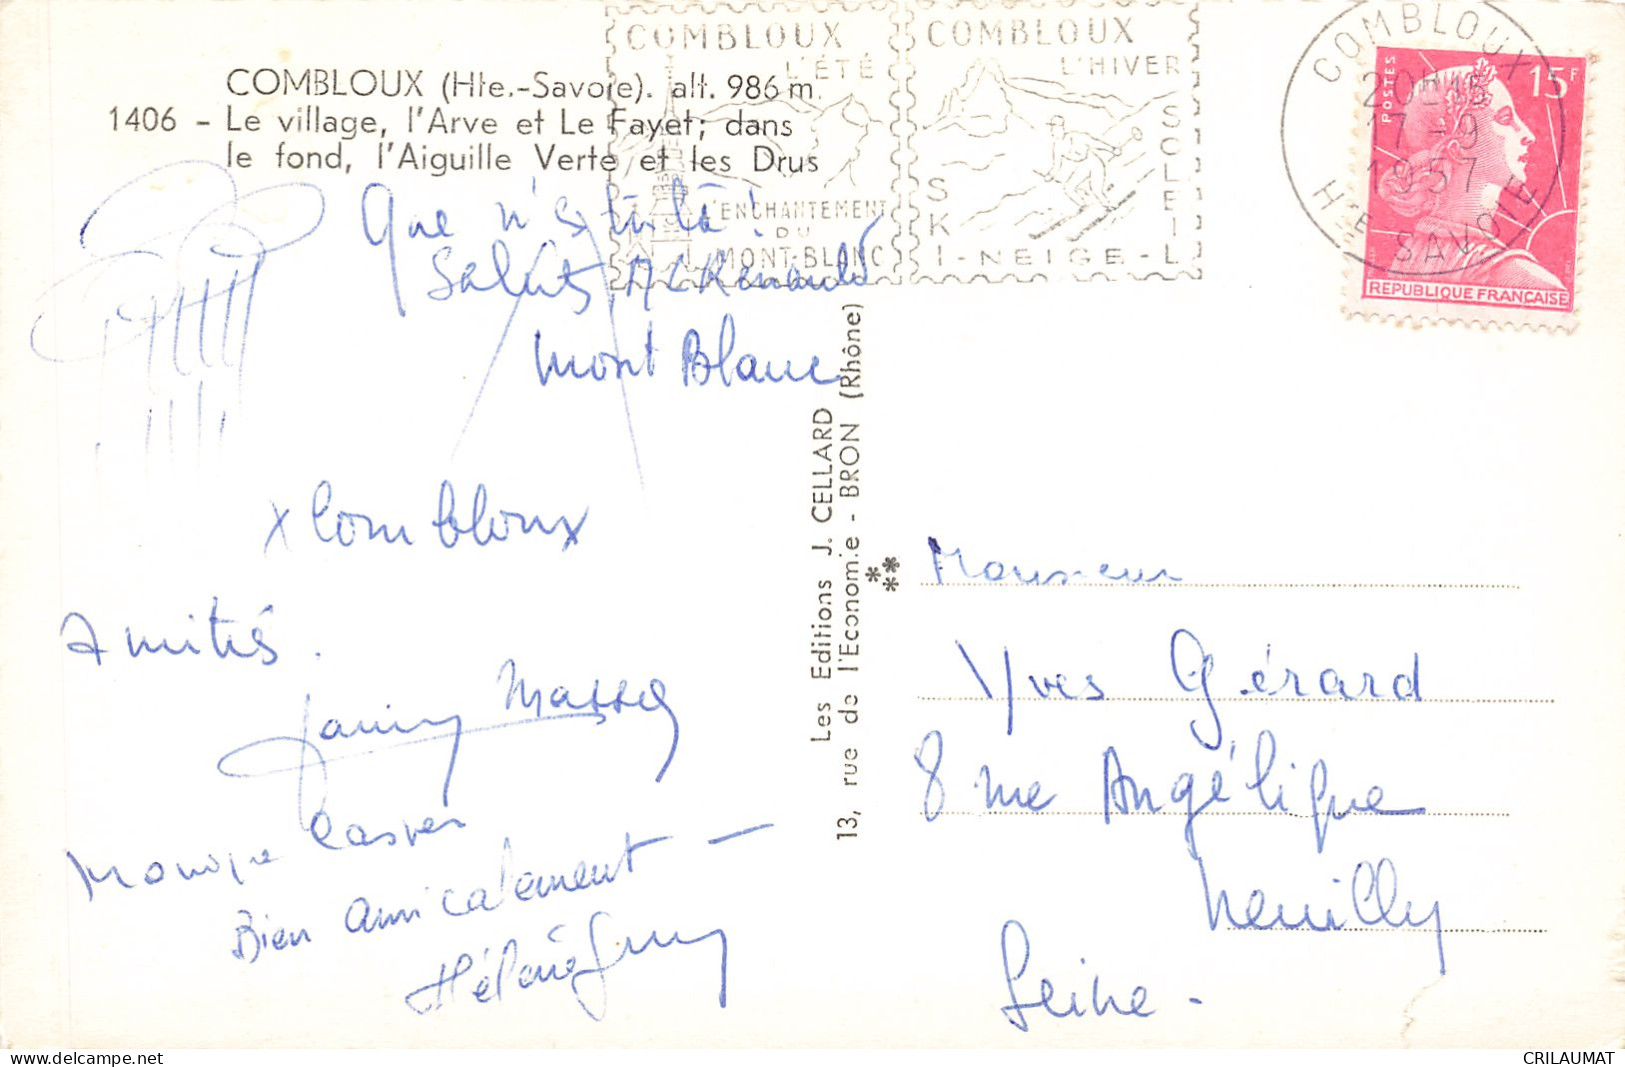 COMBLOUX (Hte.-Savoie). alt. 986 m.
1406 - Le village, l'Arve et Le Fayet; dans
le fond, l'Aiguille Verte et les Drus
COMBLOUX
L'ÉTÉ
L'ENCHANTEMENT
DU
MONT-BLANC
COMBLOUX
L'HIVER
SKI-NEIGE-
SOLEIL
COMBLOUX
20H15
17-9
1957
Hte SAVOIE
POSTES
15F
REPUBLIQUE FRANÇAISE
Que n'es tu là !
Salut,
Mont Blanc
x Combloux
Amitiés.
Janine Massé
Monique Casper
Bien amicalement -
Hélène
Les Editions J. CELLARD
13, rue de l'Economie - BRON (Rhône)
Monsieur
Yves Gérard
8 rue Angélique
Neuilly
Seine -
delcampe.net
CRILAUMAT